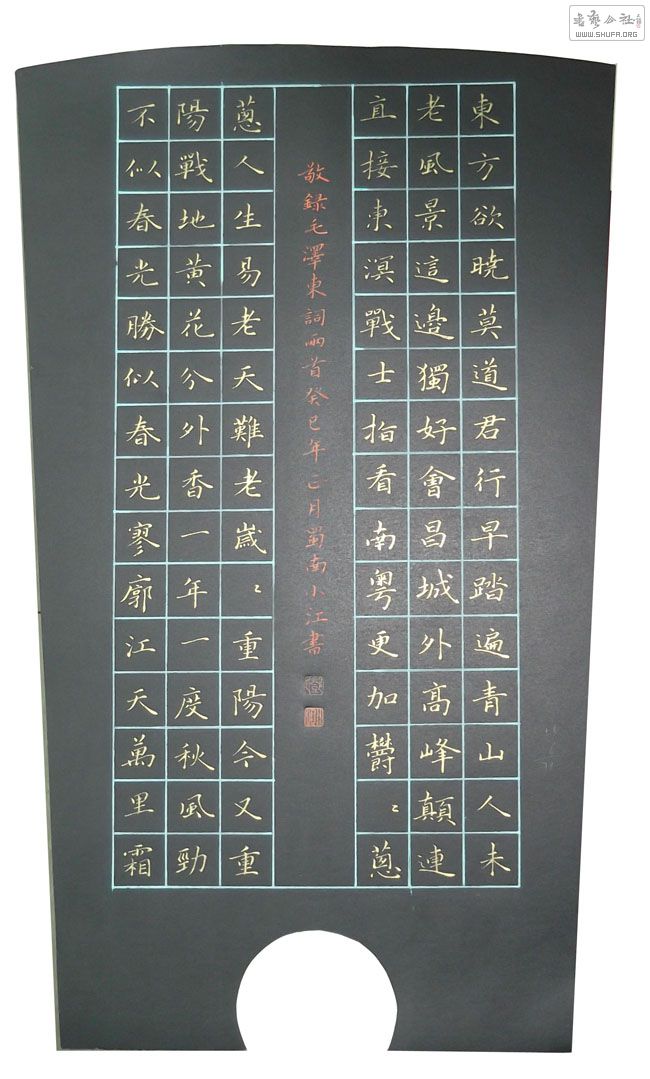 東方欲曉莫道君行早踏遍青山人未
老風景這邊獨好會昌城外高峰顛連
直接東溟戰士指看南粤更加欝〻蔥
敬録毛澤東詞兩首癸巳年二月蜀南小江書
蔥人生易老天難老歲〻重陽今又重
陽戰地黄花分外香一年一度秋風勁
不似春光勝似春光寥廓江天萬里霜
書藝公社
WWW.SHUFA.ORG